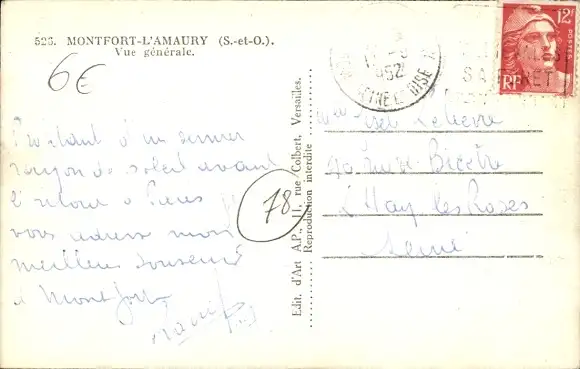 526. MONTFORT-L'AMAURY (S.-et-O.).
Vue générale.
6€
Profitant d'un dernier
rayon de soleil avant
le retour à Paris
vous adresse mon
meilleur souvenir
de Montfort
78
Edit. d'Art A.P., 11, rue Colbert, Versailles.
Reproduction interdite
12F
POSTES
RF
1952
SEINE ET OISE
Lelievre
rue de Bicetre
l'Hay les Roses
Seine